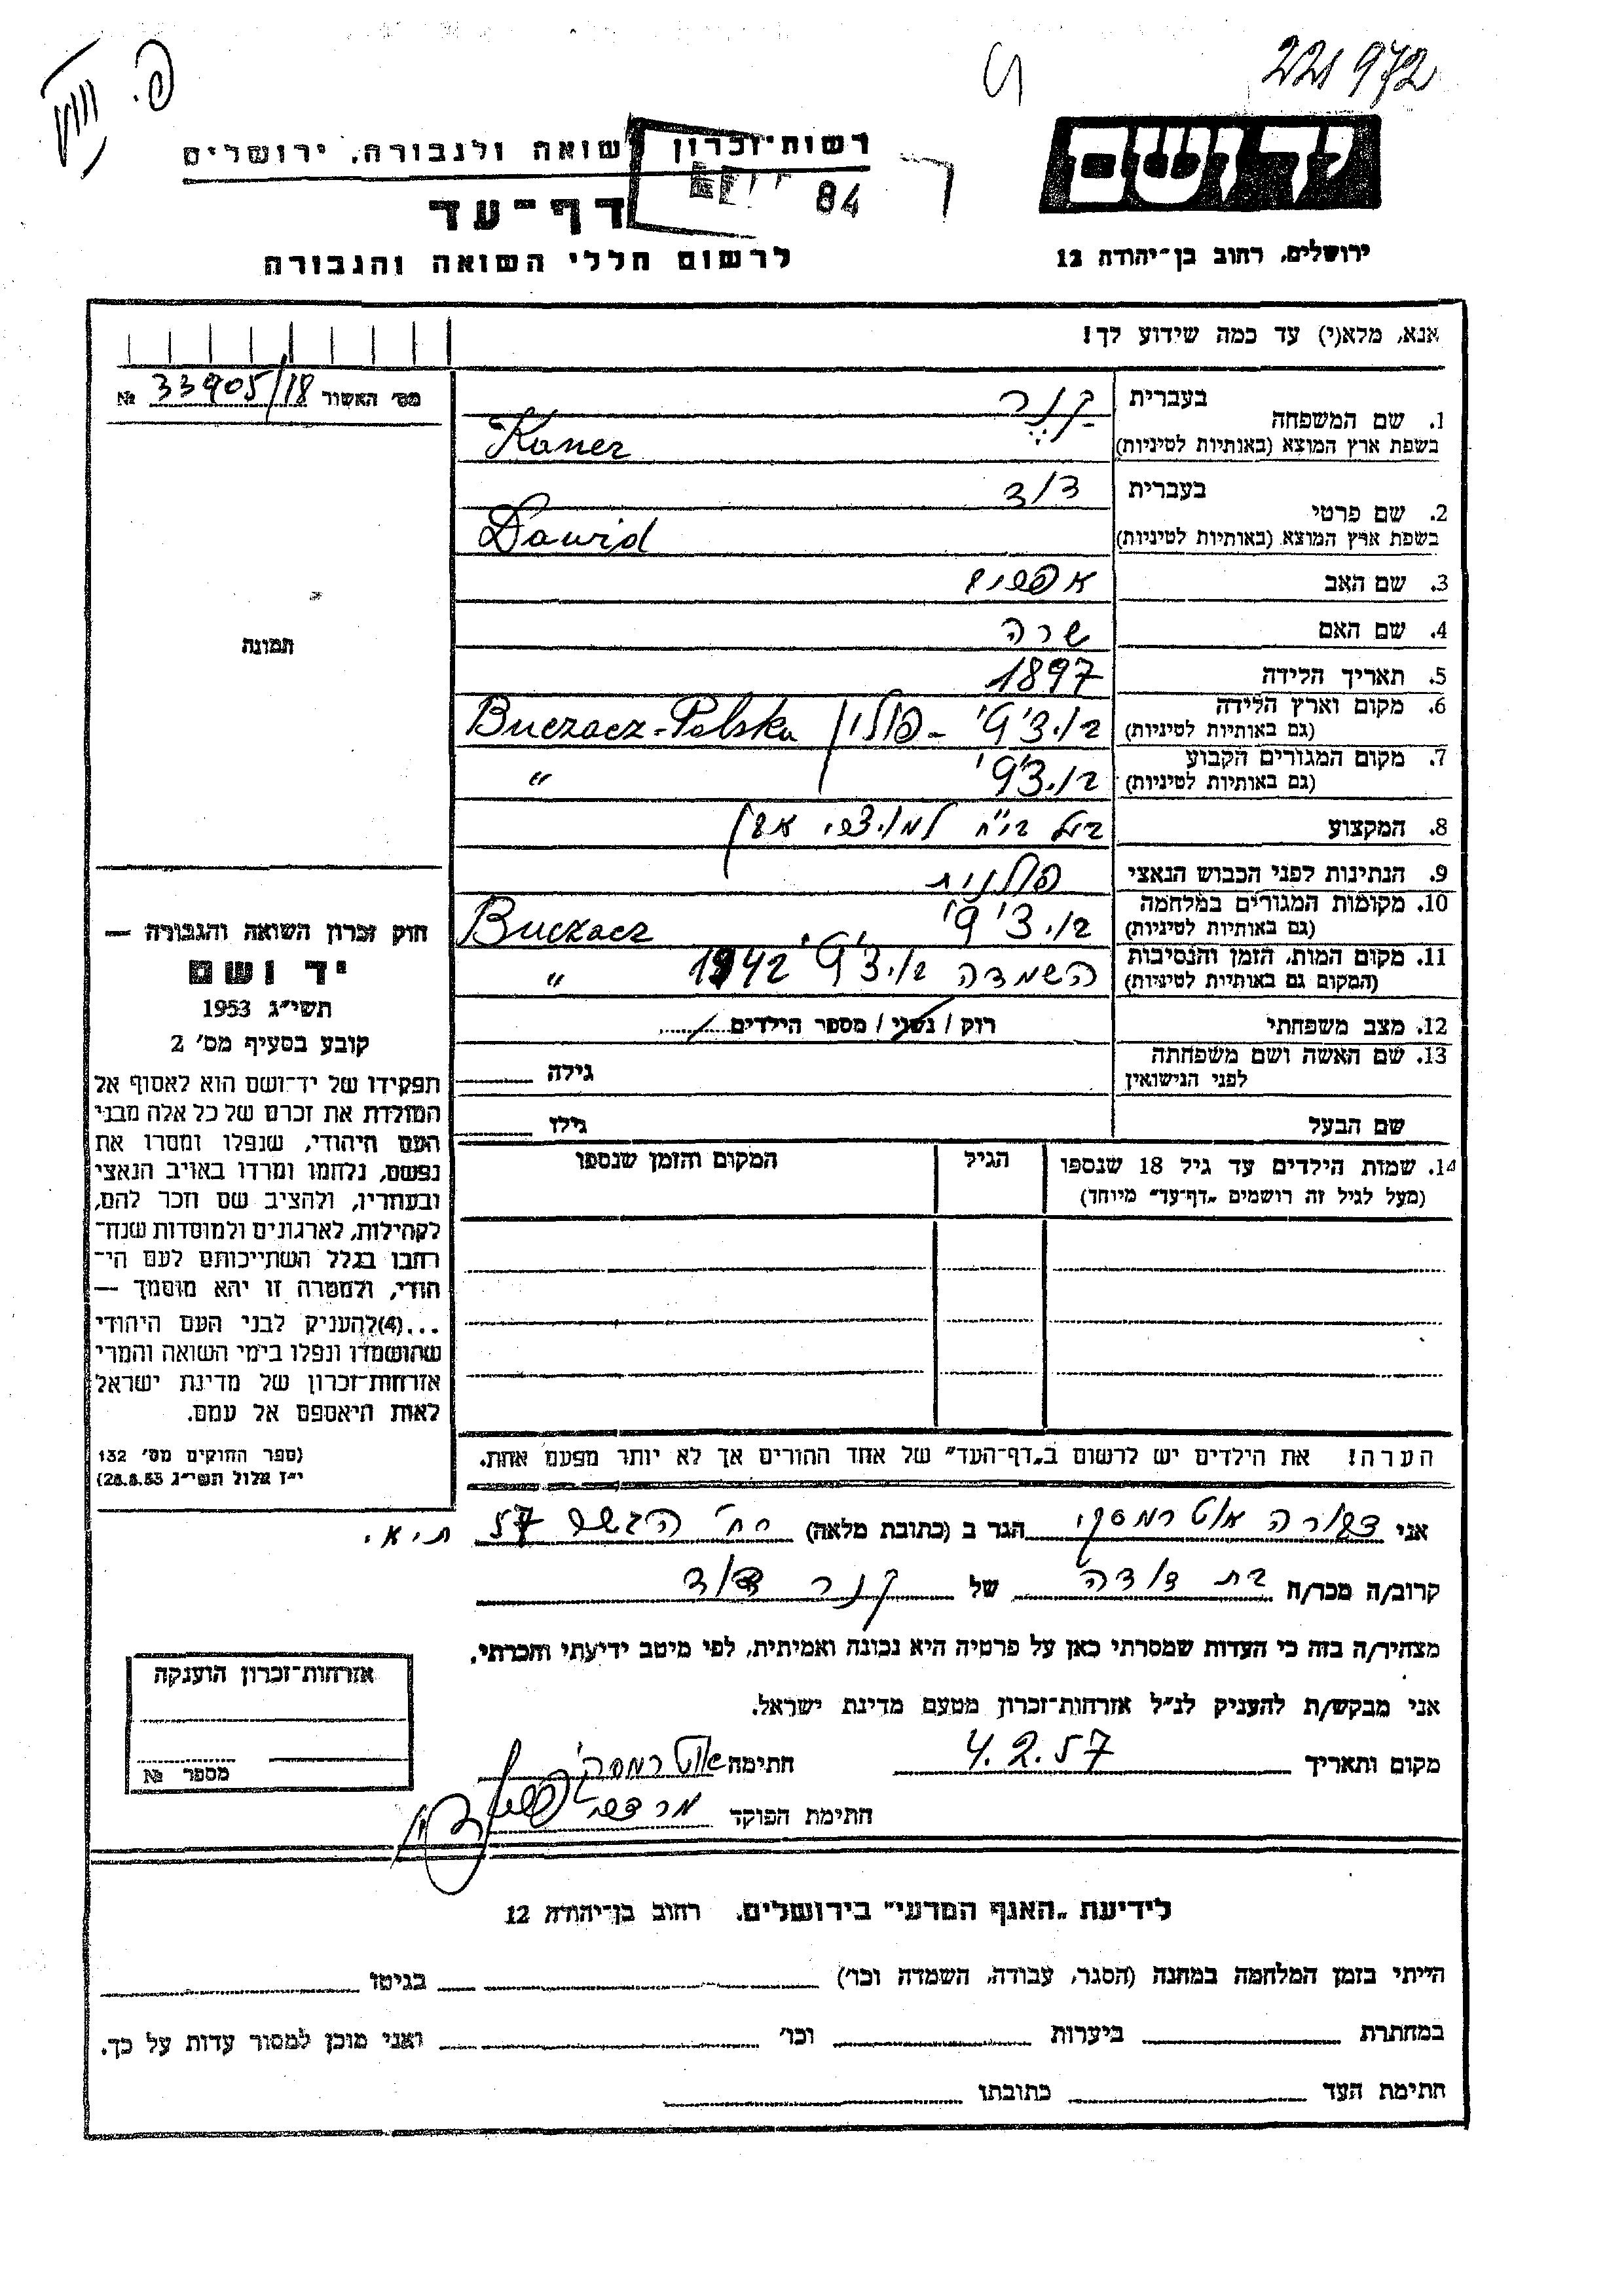 221972
יד ושם
ירושלים, רחוב בן־יהודה 12
רשות־זכרון לשואה ולגבורה, ירושלים
84
דף־עד
לרשום חללי השואה והגבורה
אנא, מלא(י) עד כמה שידוע לך!
מס׳ האשור 33905/18 №
1. שם המשפחה בעברית קנר
בשפת ארץ המוצא (באותיות לטיניות) Kaner
2. שם פרטי בעברית דוד
בשפת ארץ המוצא (באותיות לטיניות) Dawid
3. שם האב
4. שם האם שרה
5. תאריך הלידה 1897
6. מקום וארץ הלידה (גם באותיות לטיניות) בוצ׳ץ׳ - פולין Buczacz-Polska
7. מקום המגורים הקבוע (גם באותיות לטיניות) בוצ׳ץ׳ "
8. המקצוע בעל בי״ח
9. הנתינות לפני הכבוש הנאצי פולנית
10. מקומות המגורים במלחמה (גם באותיות לטיניות) בוצ׳ץ׳ Buczacz
11. מקום המות, הזמן והנסיבות (המקום גם באותיות לטיניות) השמדה בוצ׳ץ׳ 1942 "
12. מצב משפחתי רוק / נשוי / מספר הילדים
13. שם האשה ושם משפחתה לפני הנישואין גילה
שם הבעל גילו
14. שמות הילדים עד גיל 18 שנספו (מעל לגיל זה רושמים „דף־עד״ מיוחד) הגיל המקום והזמן שנספו
הערה! את הילדים יש לרשום ב„דף־העד״ של אחד ההורים אך לא יותר מפעם אחת.
תמונה
חוק זכרון השואה והגבורה —
יד ושם
תשי״ג 1953
קובע בסעיף מס׳ 2
תפקידו של יד־ושם הוא לאסוף אל
המולדת את זכרם של כל אלה מבני
העם היהודי, שנפלו ומסרו את
נפשם, נלחמו ומרדו באויב הנאצי
ובעוזריו, ולהציב שם וזכר להם,
לקהילות, לארגונים ולמוסדות שנח־
רבו בגלל השתייכותם לעם הי־
הודי, ולמטרה זו יהא מוסמך —
...(4)להעניק לבני העם היהודי
שהושמדו ונפלו בימי השואה והמרי
אזרחות־זכרון של מדינת ישראל
לאות היאספם אל עמם.
(ספר החוקים מס׳ 132
י״ז אלול תשי״ג 28.8.53)
אני הגר ב (כתובת מלאה) רח׳ 57 ת״א.
קרוב/ה מכר/ה בת דודה של קנר דוד
מצהיר/ה בזה כי העדות שמסרתי כאן על פרטיה היא נכונה ואמיתית, לפי מיטב ידיעתי והכרתי.
אני מבקש/ת להעניק לנ״ל אזרחות־זכרון מטעם מדינת ישראל.
מקום ותאריך 4.2.57 חתימה
חתימת הפוקד
אזרחות־זכרון הוענקה
מספר №
לידיעת „האגף המדעי״ בירושלים, רחוב בן־יהודה 12
הייתי בזמן המלחמה במחנה (הסגר, עבודה, השמדה וכו׳) בגיטו
במחתרת ביערות וכו׳ ואני מוכן למסור עדות על כך.
חתימת העד כתובתו